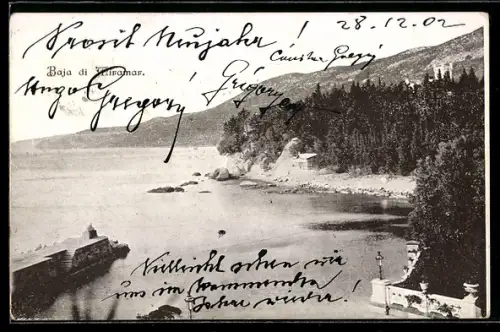 28.12.02
Prosit Neujahr!
Baja di Miramar.
Hugo Gregory
Gregory
Vielleicht sehen wir
uns im kommenden
Jahre wieder!